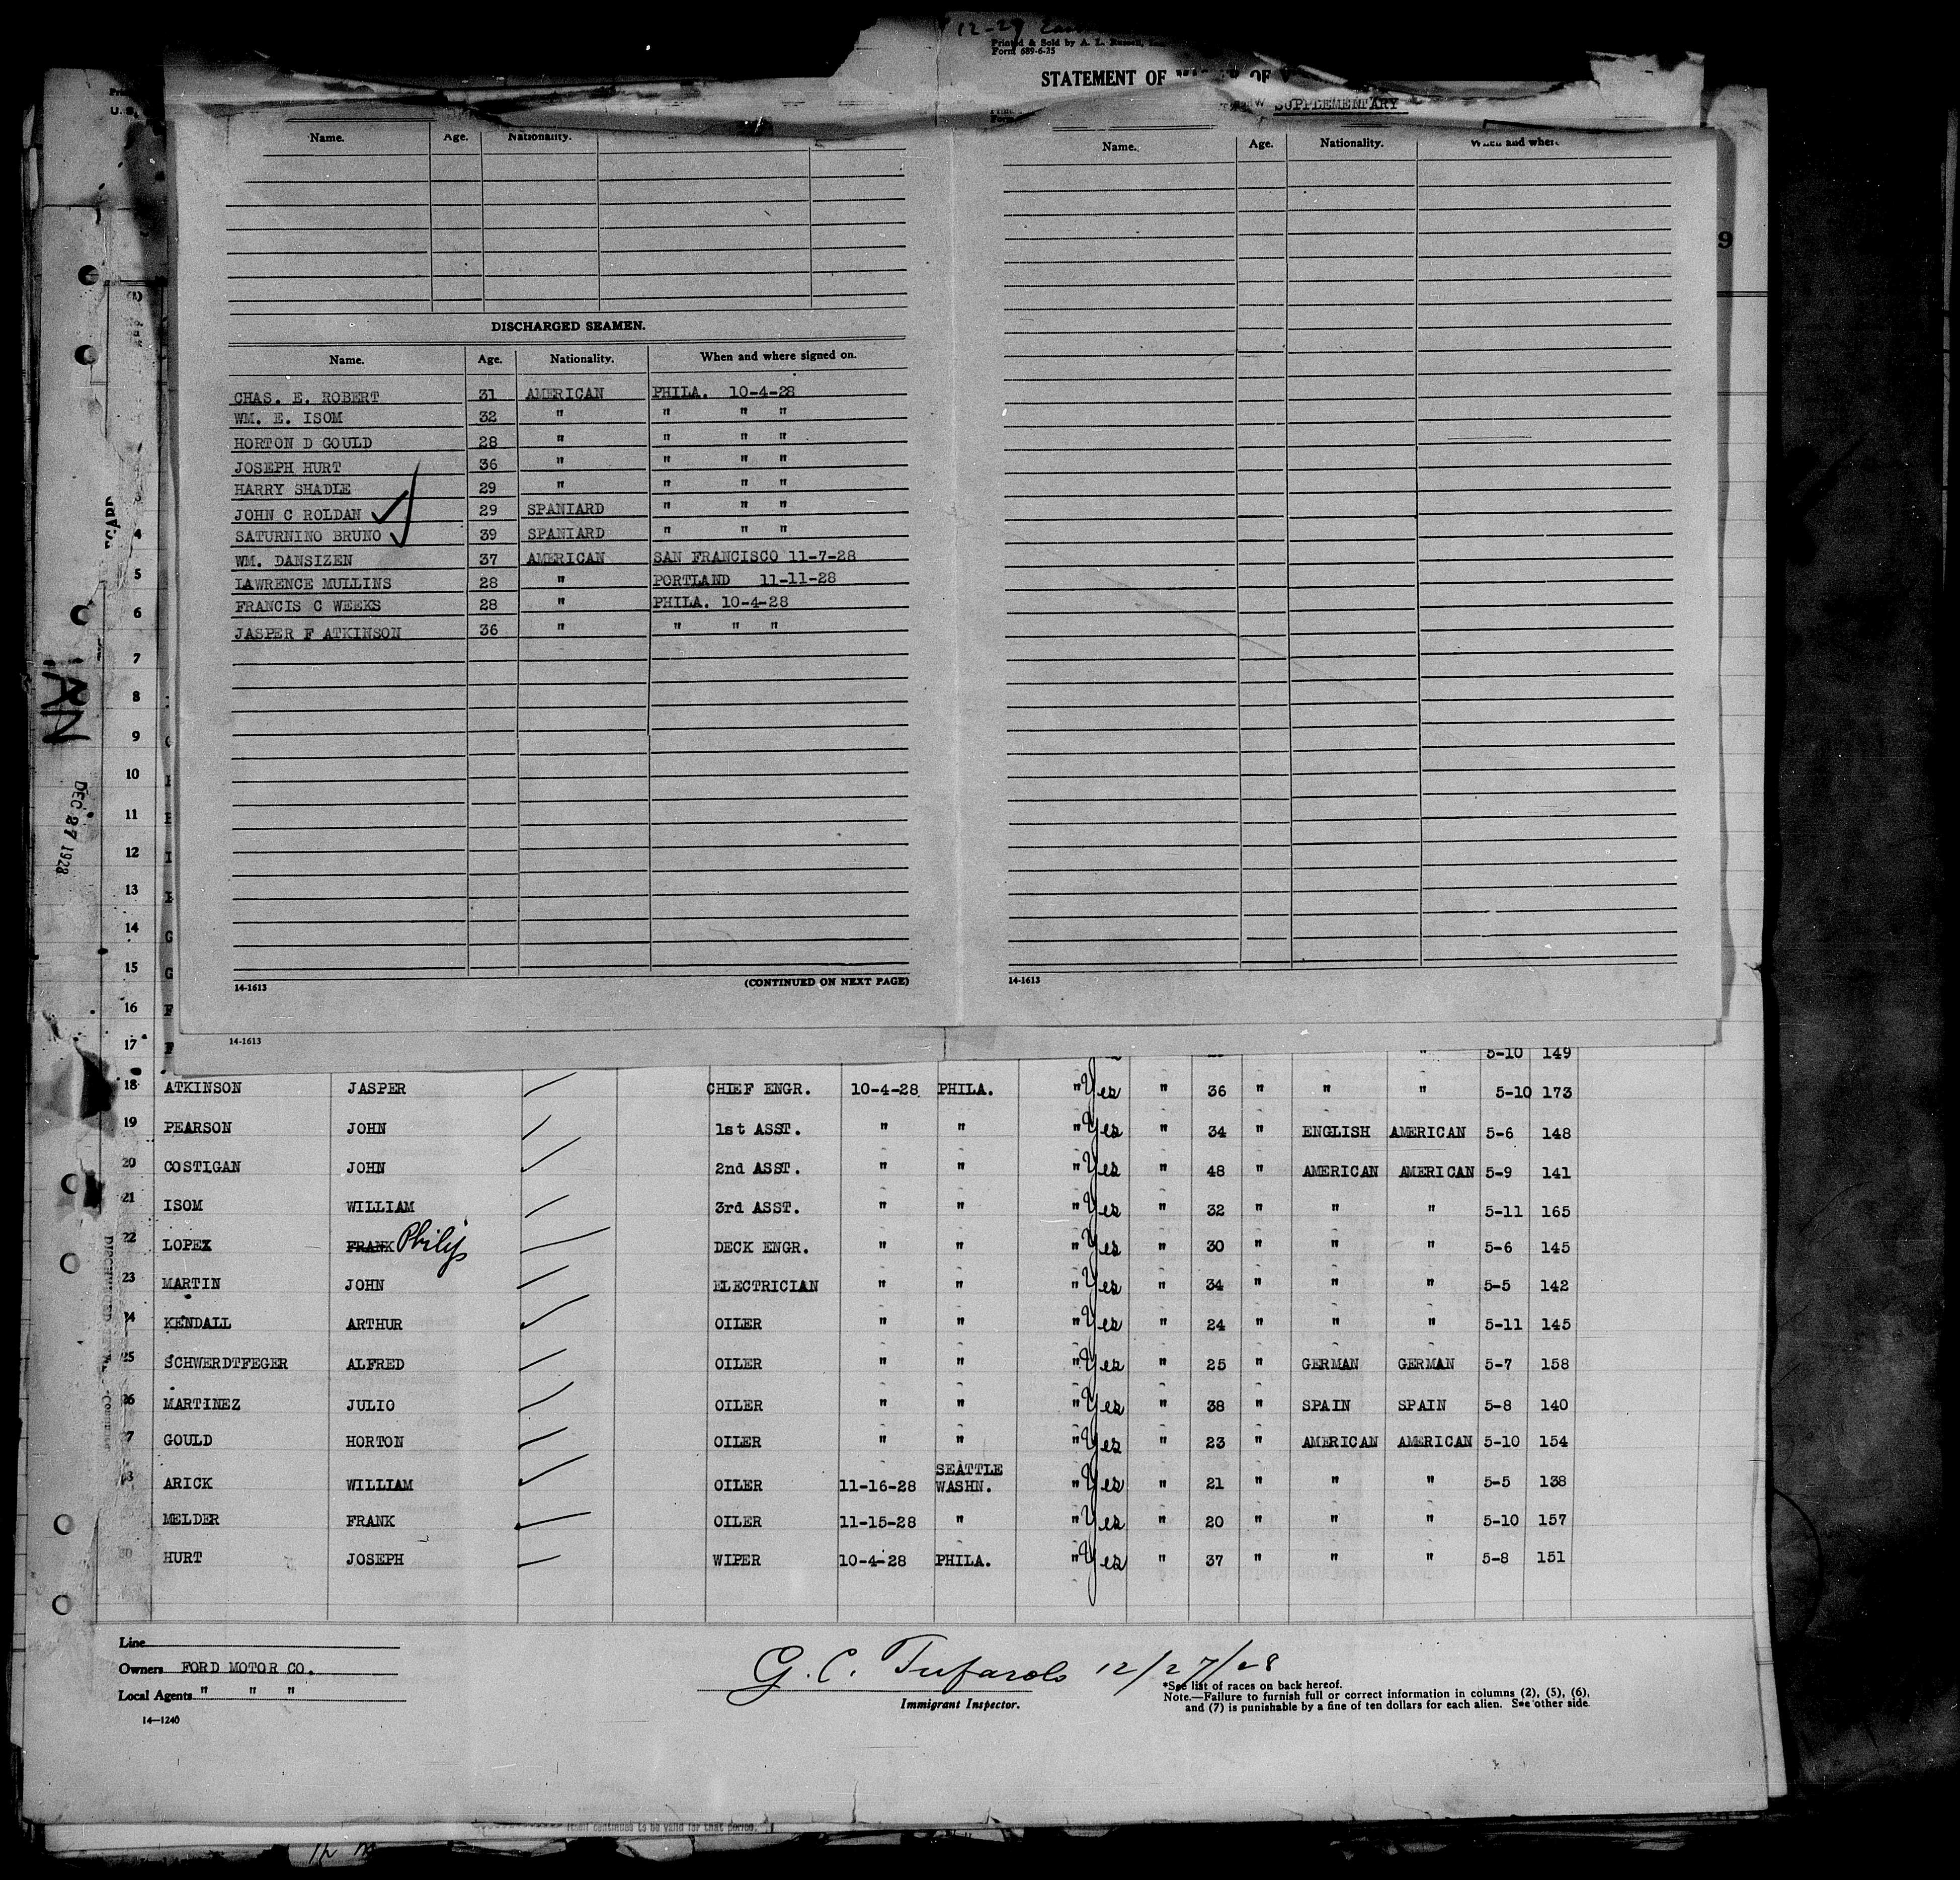 12-29
Printed & Sold by A. L. Russell, Inc.
Form 689-6-25
STATEMENT OF MASTER OF
SUPPLEMENTARY
Name. Age. Nationality.
Name. Age. Nationality. When and where
9
DISCHARGED SEAMEN.
Name. Age. Nationality. When and where signed on.
CHAS. E. ROBERT 31 AMERICAN PHILA. 10-4-28
WM. E. ISOM 32 " " " "
HORTON D GOULD 28 " " " "
JOSEPH HURT 36 " " " "
HARRY SHADLE 29 " " " "
JOHN C ROLDAN 29 SPANIARD " " "
SATURNINO BRUNO 39 SPANIARD " " "
WM. DANSIZEN 37 AMERICAN SAN FRANCISCO 11-7-28
LAWRENCE MULLINS 28 " PORTLAND 11-11-28
FRANCIS C WEEKS 28 " PHILA. 10-4-28
JASPER F ATKINSON 36 " " " "
14-1613 (CONTINUED ON NEXT PAGE)
14-1613
14-1613
DEC 27 1928
4
5
6
7
8
9
10
11
12
13
14 G
15 G
16 F
17 F " 5-10 149
18 ATKINSON JASPER CHIEF ENGR. 10-4-28 PHILA. " Yes " 36 " " " 5-10 173
19 PEARSON JOHN 1st ASST. " " " Yes " 34 " ENGLISH AMERICAN 5-6 148
20 COSTIGAN JOHN 2nd ASST. " " " Yes " 48 " AMERICAN AMERICAN 5-9 141
21 ISOM WILLIAM 3rd ASST. " " " Yes " 32 " " " 5-11 165
22 LOPEZ FRANK Philip DECK ENGR. " " " Yes " 30 " " " 5-6 145
23 MARTIN JOHN ELECTRICIAN " " " Yes " 34 " " " 5-5 142
24 KENDALL ARTHUR OILER " " " Yes " 24 " " " 5-11 145
25 SCHWERDTFEGER ALFRED OILER " " " Yes " 25 " GERMAN GERMAN 5-7 158
26 MARTINEZ JULIO OILER " " " Yes " 38 " SPAIN SPAIN 5-8 140
7 GOULD HORTON OILER " " " Yes " 23 " AMERICAN AMERICAN 5-10 154
SEATTLE
ARICK WILLIAM OILER 11-16-28 WASHN. " Yes " 21 " " " 5-5 138
MELDER FRANK OILER 11-15-28 " " Yes " 20 " " " 5-10 157
HURT JOSEPH WIPER 10-4-28 PHILA. " Yes " 37 " " " 5-8 151
Line
Owners FORD MOTOR CO.
Local Agents " " "
14—1240
G. C. Tufarolo 12/27/28
Immigrant Inspector.
*See list of races on back hereof.
Note.—Failure to furnish full or correct information in columns (2), (5), (6),
and (7) is punishable by a fine of ten dollars for each alien. See other side.
itself continues to be valid for that period.